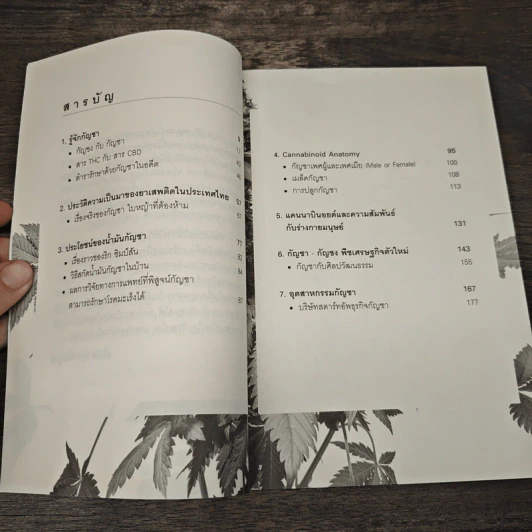 สารบัญ
1. รู้จักกัญชา
• กัญชง กับ กัญชา
• สาร THC กับ สาร CBD
• ตำรารักษาด้วยกัญชาในอดีต
2. ประวัติความเป็นมาของยาเสพติดในประเทศไทย 57
• เรื่องจริงของกัญชา ใบหญ้าที่ต้องห้าม
3. ประโยชน์ของน้ำมันกัญชา 77
• เรื่องราวของริก ซิมป์สัน
• วิธีสกัดน้ำมันกัญชาในบ้าน 84
• ผลการวิจัยทางการแพทย์ที่พิสูจน์กัญชา
สามารถรักษาโรคมะเร็งได้ 87
4. Cannabinoid Anatomy 95
• กัญชาเพศผู้และเพศเมีย (Male or Female) 100
• เมล็ดกัญชา 108
• การปลูกกัญชา 113
5. แคนนาบินอยด์และความสัมพันธ์
กับร่างกายมนุษย์ 131
6. กัญชา - กัญชง พืชเศรษฐกิจตัวใหม่ 143
• กัญชากับศิลปวัฒนธรรม 155
7. อุตสาหกรรมกัญชา 167
• บริษัทสตาร์ทอัพธุรกิจกัญชา 177